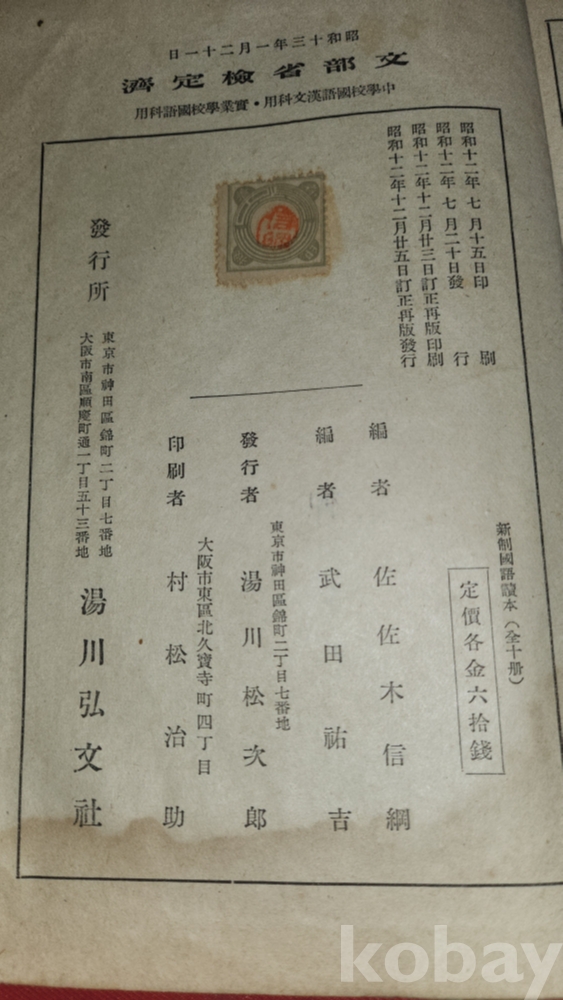 昭和十三年一月二十一日
文部省檢定濟
中學校國語漢文科用・實業學校國語科用
昭和十二年七月十五日印刷
昭和十二年七月二十日發行
昭和十二年十二月廿三日訂正再版印刷
昭和十二年十二月廿五日訂正再版發行
新制國語讀本（全十册）
定價各金六拾錢
編者 佐佐木信綱
編者 武田祐吉
東京市神田區錦町二丁目七番地
發行者 湯川松次郎
大阪市東區北久寶寺町四丁目
印刷者 村松治助
發行所
東京市神田區錦町二丁目七番地
大阪市南區順慶町通一丁目五十三番地
湯川弘文社
信綱
kobay